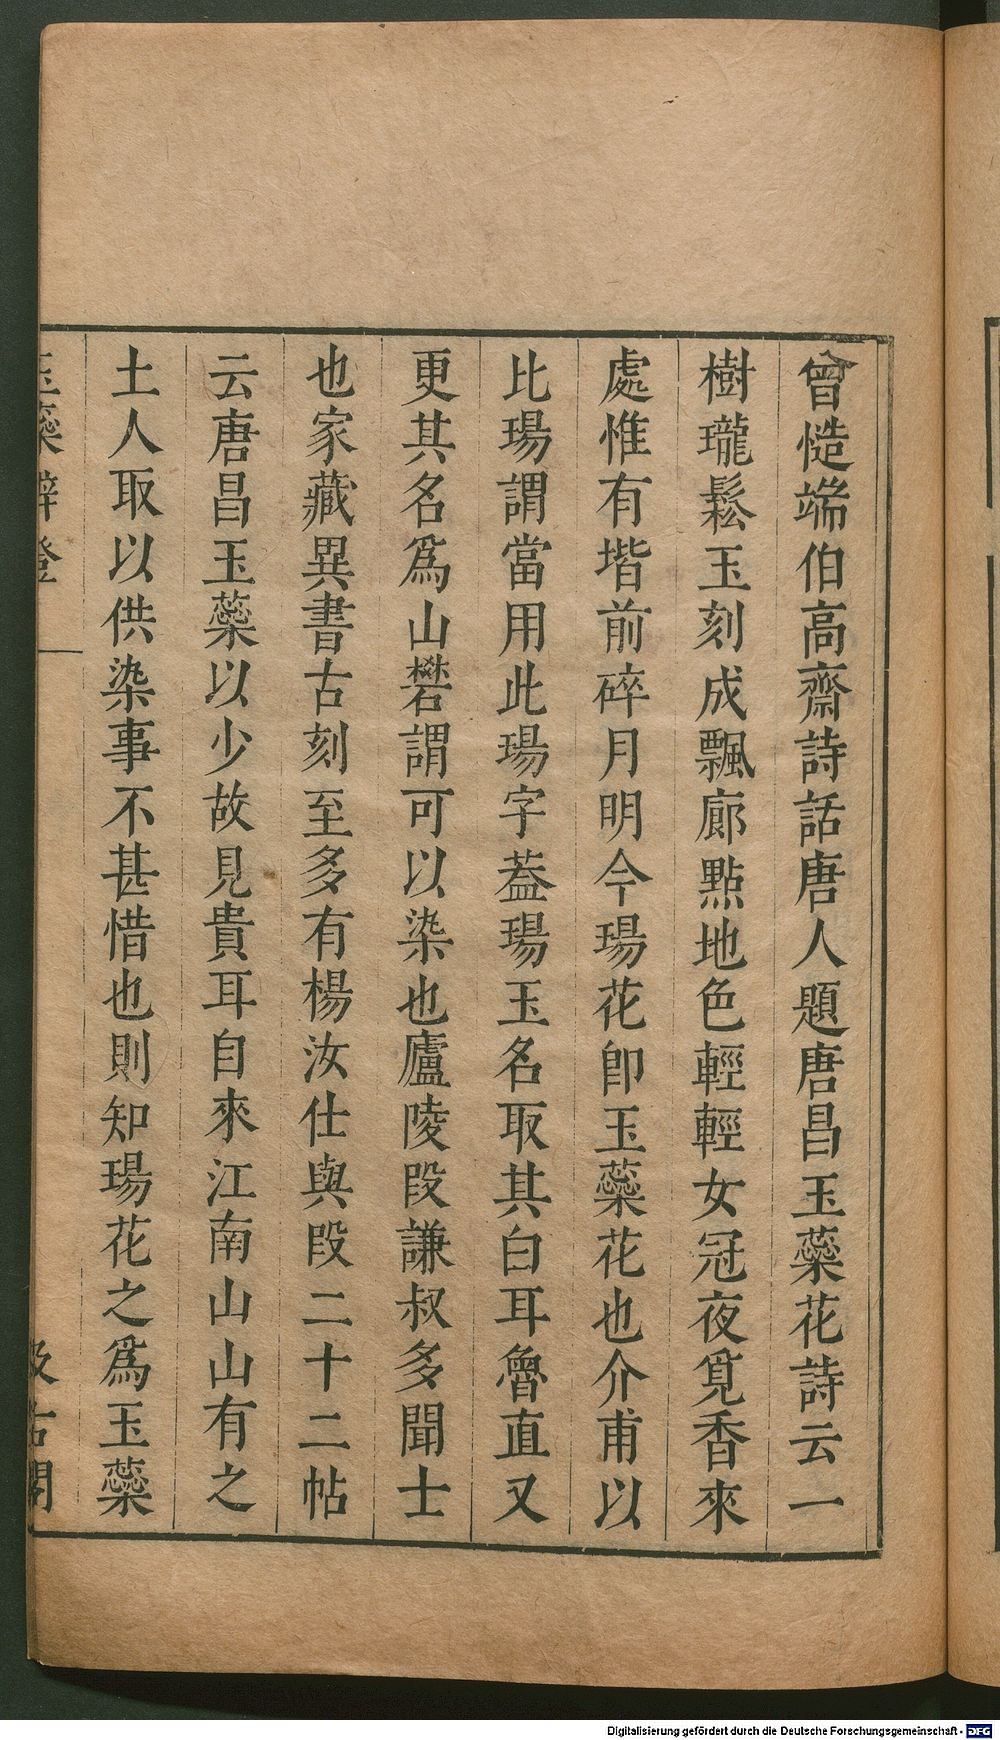 曾慥端伯高齋詩話唐人題唐昌玉蘂花詩云一
樹瓏鬆玉刻成飄廊點地色輕輕女冠夜覓香來
處惟有堦前碎月明今瑒花卽玉蘂花也介甫以
比瑒謂當用此瑒字葢瑒玉名取其白耳魯直又
更其名爲山礬謂可以染也廬陵段謙叔多聞士
也家藏異書古刻至多有楊汝仕與段二十二帖
云唐昌玉蘂以少故見貴耳自來江南山山有之
土人取以供染事不甚惜也則知瑒花之爲玉蘂
玉蘂辨證 一 汲古閣
Digitalisierung gefördert durch die Deutsche Forschungsgemeinschaft - DFG